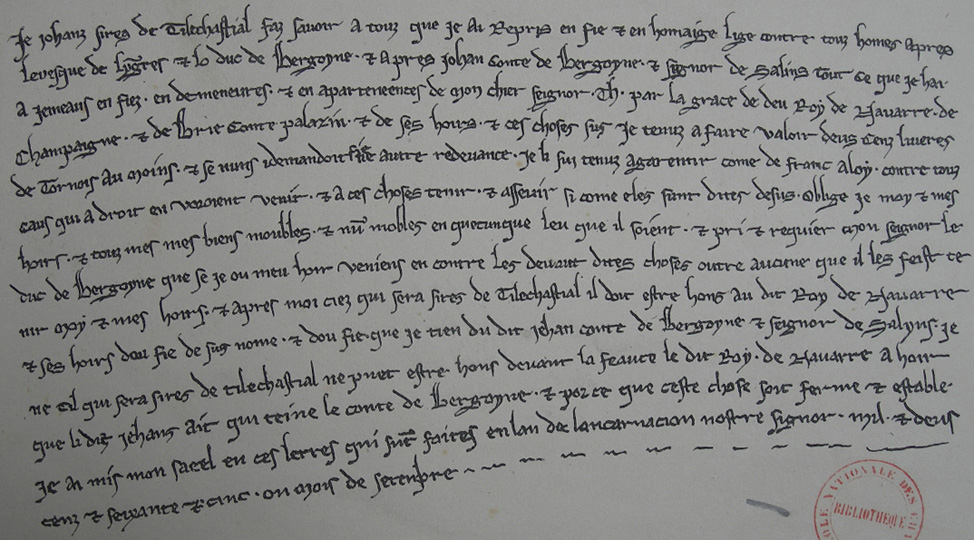 Je Johanz sires de Tilechastial faz savoir a touz que je ai Repris en fie et en homaige lige contre touz homes apres
levesque de Lygres et lo duc de Bergoyne. et apres Johan Conte de Bergoyne. et signor de Salins tout ce que je hai
a Jemeaus en fiez. en demeneures. et en apartenences de mon chier seignor. Th. par la grace de deu Roy de Navarre. de
Champaigne. et de Brie Conte palazin. et de ses hoirs. et ces choses sus Je tenuz a faire valoir deus Cenz liveres
de Tornois au moins. et se nuns demandoit autre redevance. Je li sui tenuz agarentir come de franc aloy. contre touz
caus qui a droit en voroient venir. et a ces choses tenir. et assevir si come eles sunt dites desus. Oblige Je moy et mes
hoirs. et touz mes mes biens moubles. et nũ mobles en quecunque leu que il soient. et pri et requier mon seignor le
duc de Bergoyne que se je ou meu hoir veniens en contre les devant dites choses outre aucune que il les feist te
nir moy et mes hoirs. et apres moi ciez qui sera sires de Tilechastial il doit estre hons au dit Roy de Navarre
et ses hoirs dou fie de sus nome. et dou fie. que Je tien du dit Jehan conte de Bergoyne et seignor de Salyns. Je
ne cil qui sera sires de tilechastial ne puet estre. hons devant la feaute le dit Roy. de Navarre a hoir
que li diz Jehans ait qui teine le conte de Bergoyne. et porce que ceste chose soit ferme et estable.
Je ai mis mon saeel en ces letres qui sũt faites en lan de lancarnacion nostre signor. mil. et deus
cenz et seixante et cinc. on mois de setenbre
BIBLIOTHEQUE